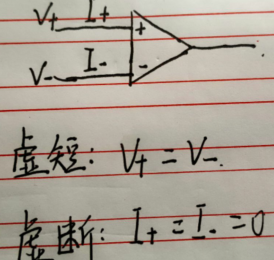 V+ I+
+
V- I-
-
虚短: V+ = V-.
虚断: I+ = I- = 0